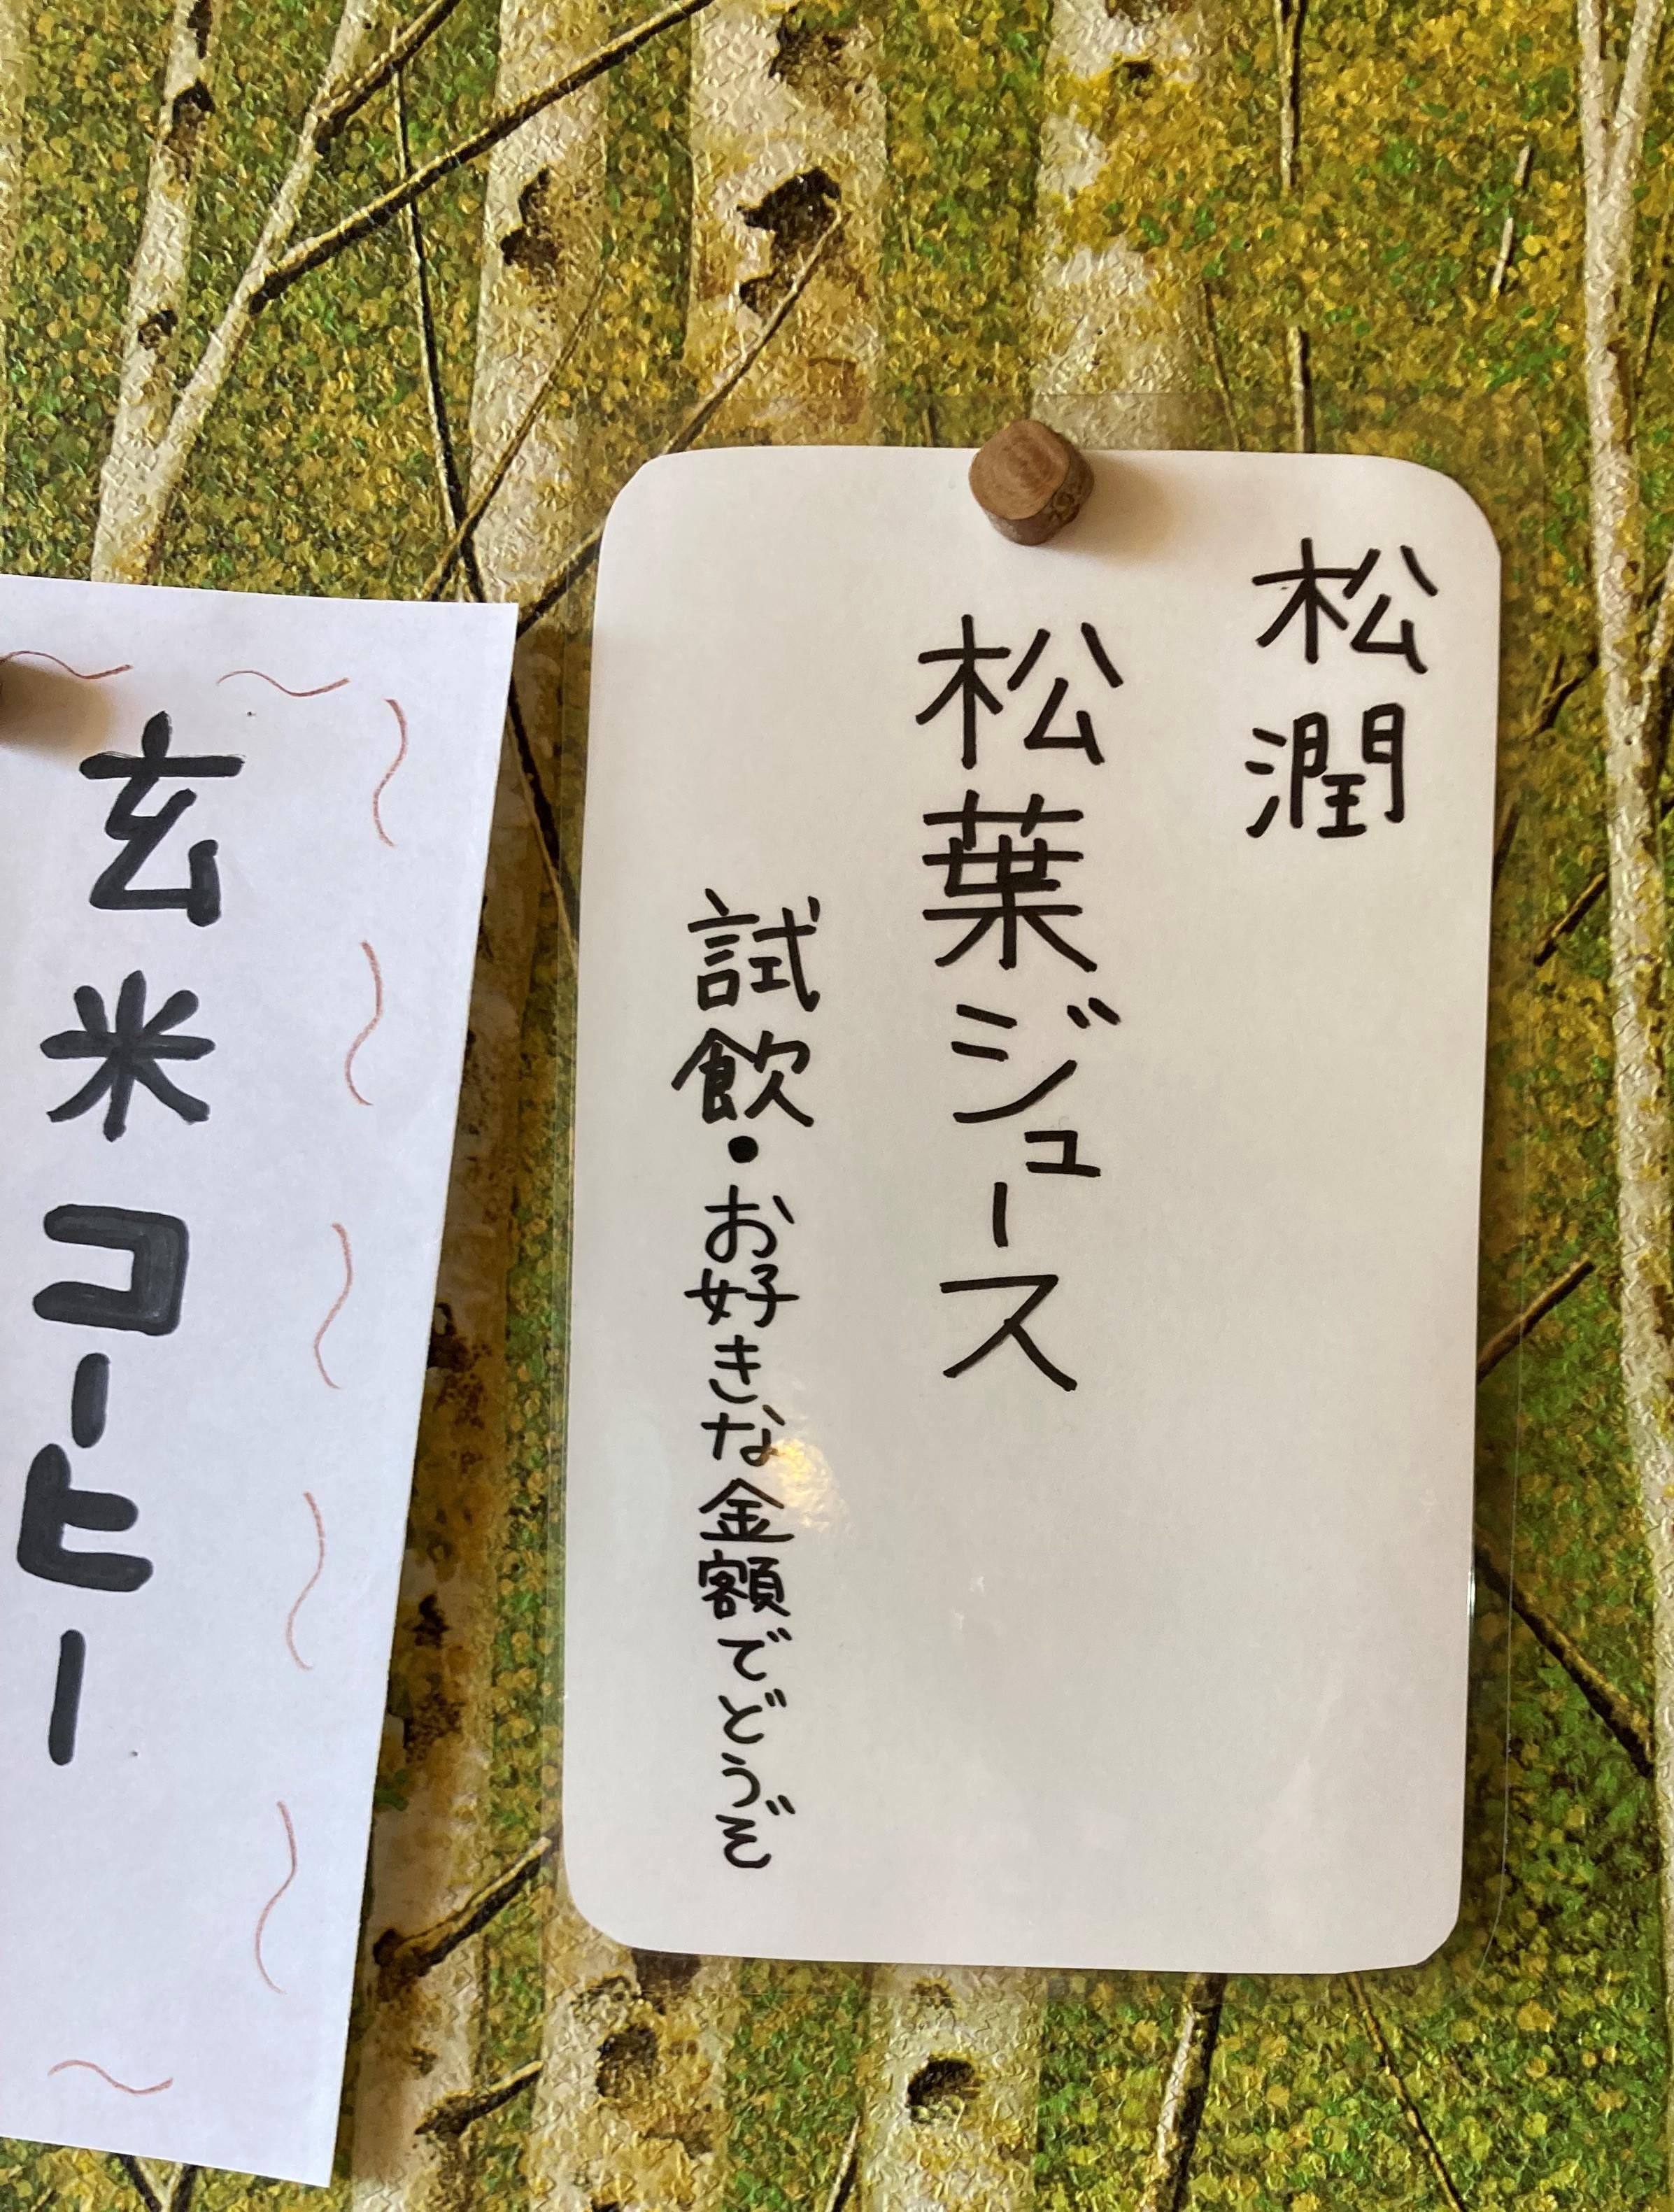 松潤
松葉ジュース
試飲・お好きな金額でどうぞ
玄米コーヒー